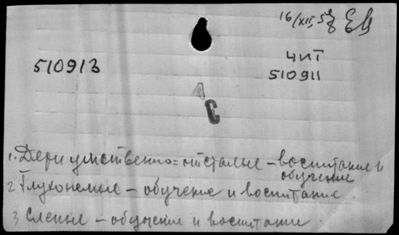 16/XII 58 ЕВ
510913
ЧИТ
510911
А
С
1. Дети умственно=отсталые – воспитание и
обучение
2. Глухонемые – обучение и воспитание.
3. Слепые – обучение и воспитание.